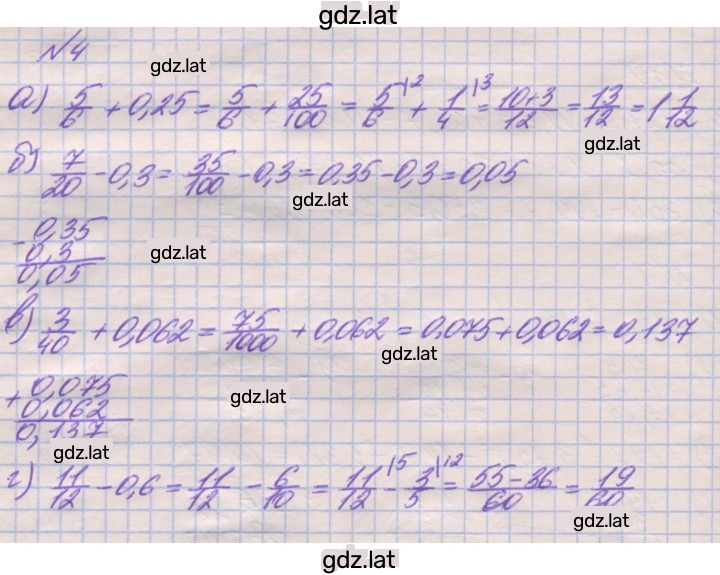 gdz.lat
№4
gdz.lat
а) 5/6 + 0,25 = 5/6 + 25/100 = 5/6 |2 + 1/4 |3 = 10+3/12 = 13/12 = 1 1/12
gdz.lat
б) 7/20 - 0,3 = 35/100 - 0,3 = 0,35 - 0,3 = 0,05
gdz.lat
- 0,35
0,3
gdz.lat
0,05
в) 3/40 + 0,062 = 75/1000 + 0,062 = 0,075 + 0,062 = 0,137
gdz.lat
+ 0,075
gdz.lat
0,062
0,137
gdz.lat
г) 11/12 - 0,6 = 11/12 - 6/10 = 11/12 |5 - 3/5 |12 = 55-36/60 = 19/60
gdz.lat
gdz.lat